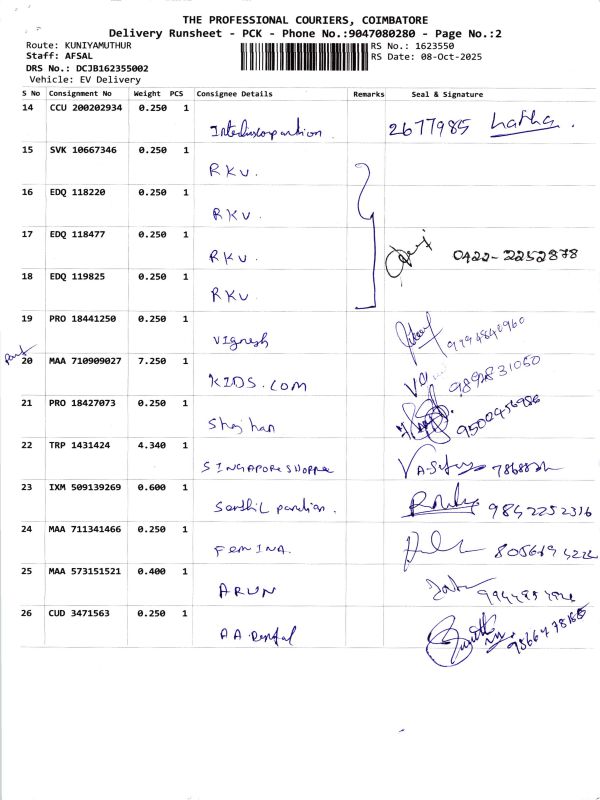 THE PROFESSIONAL COURIERS, COIMBATORE
Delivery Runsheet - PCK - Phone No.:9047080280 - Page No.:2
Route: KUNIYAMUTHUR
RS No.: 1623550
Staff: AFSAL
RS Date: 08-Oct-2025
DRS No.: DCJB162355002
Vehicle: EV Delivery
S No Consignment No Weight PCS Consignee Details Remarks Seal & Signature
14 CCU 200202934 0.250 1
2677985
15 SVK 10667346 0.250 1
RKV.
16 EDQ 118220 0.250 1
RKV.
17 EDQ 118477 0.250 1
RKV. 0422-2252878
18 EDQ 119825 0.250 1
RKV.
19 PRO 18441250 0.250 1
Vignesh 9994842960
20 MAA 710909027 7.250 1
KIDS.COM 9892831050
21 PRO 18427073 0.250 1
9500456986
22 TRP 1431424 4.340 1
SINGAPORE SHOPPE
23 IXM 509139269 0.600 1
Senthil pandian. 9842252316
24 MAA 711341466 0.250 1
FEMINA.
25 MAA 573151521 0.400 1
ARUN
26 CUD 3471563 0.250 1
AA Dental